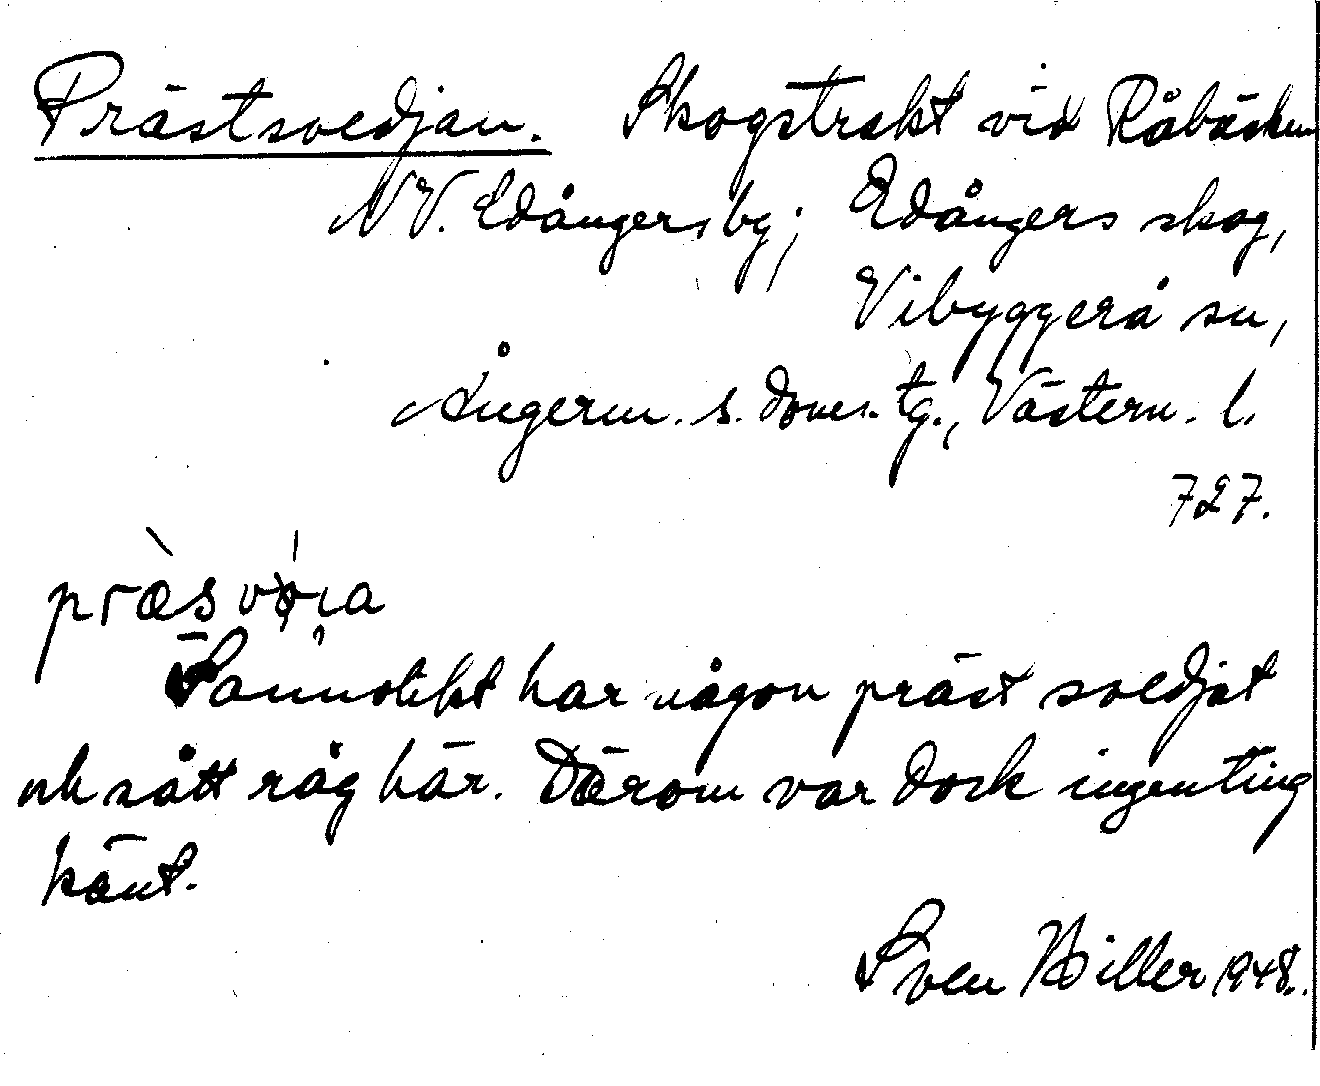 Prästsvedjan. Skogstrakt vid Råbäcken
NV. Edångers by; Edångers skog,
Vibyggerå sn,
Ångerm. s. doms. tg., Västern. l.
727.
Sannolikt har någon präst svedjat
och sått råg här. Därom var dock ingenting
känt.
Sven Hiller 1948.